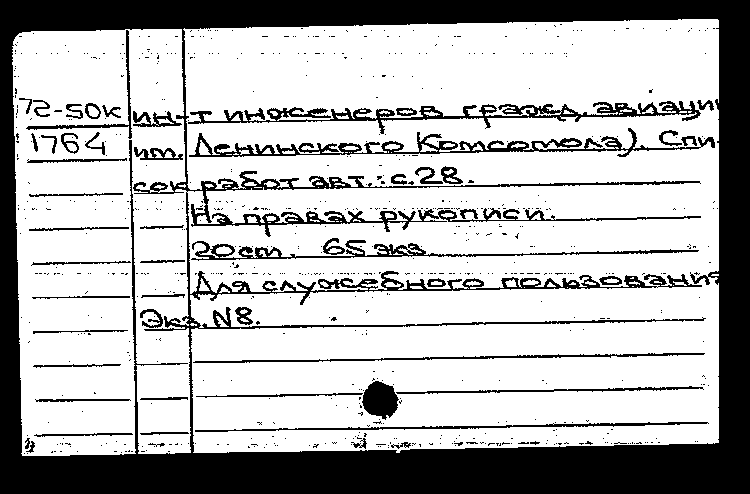 72-50к ин-т инженеров гражд. авиации
1764 им. Ленинского Комсомола). Спи-
сок работ авт.: с.28.
На правах рукописи.
20 ст. 65 экз
Для служебного пользования
Экз. N8.